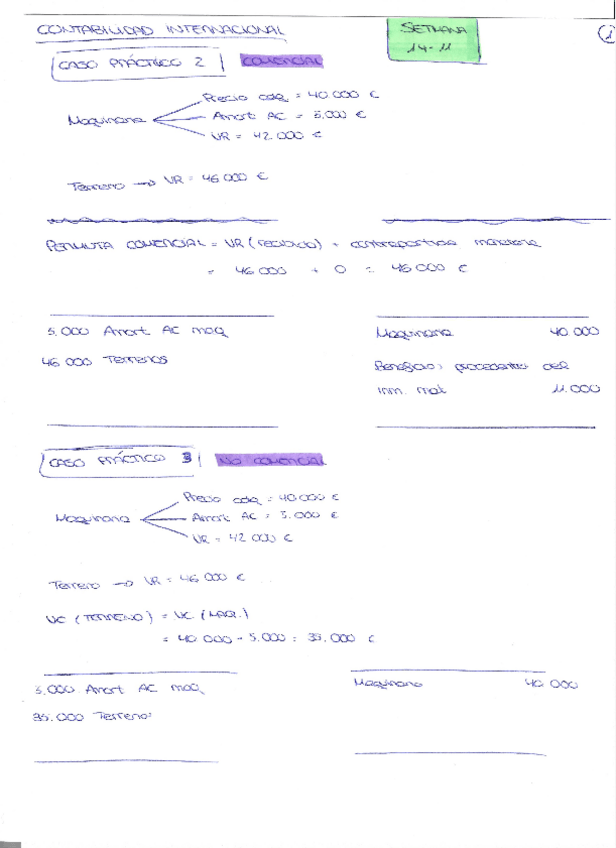 CONTABILIDAD INTERNACIONAL
SEMANA
14-11
1
CASO PRÁCTICO 2
COMERCIAL
Precio adq = 40.000 €
Maquinaria
Amort AC = 5.000 €
VR = 42.000 €
Terreno → VR = 46.000 €
PERMUTA COMERCIAL = VR (recibido) + contrapartida monetaria
= 46.000 + 0 = 46.000 €
5.000 Amort AC maq
Maquinaria 40.000
46.000 Terrenos
Beneficios procedentes del
inm. mat 11.000
CASO PRÁCTICO 3
NO COMERCIAL
Precio adq = 40.000 €
Maquinaria
Amort AC = 5.000 €
VR = 42.000 €
Terreno → VR = 46.000 €
VC (TERRENO) = VC (MAQ.)
= 40.000 - 5.000 = 35.000 €
5.000 Amort AC maq
Maquinaria 40.000
35.000 Terreno